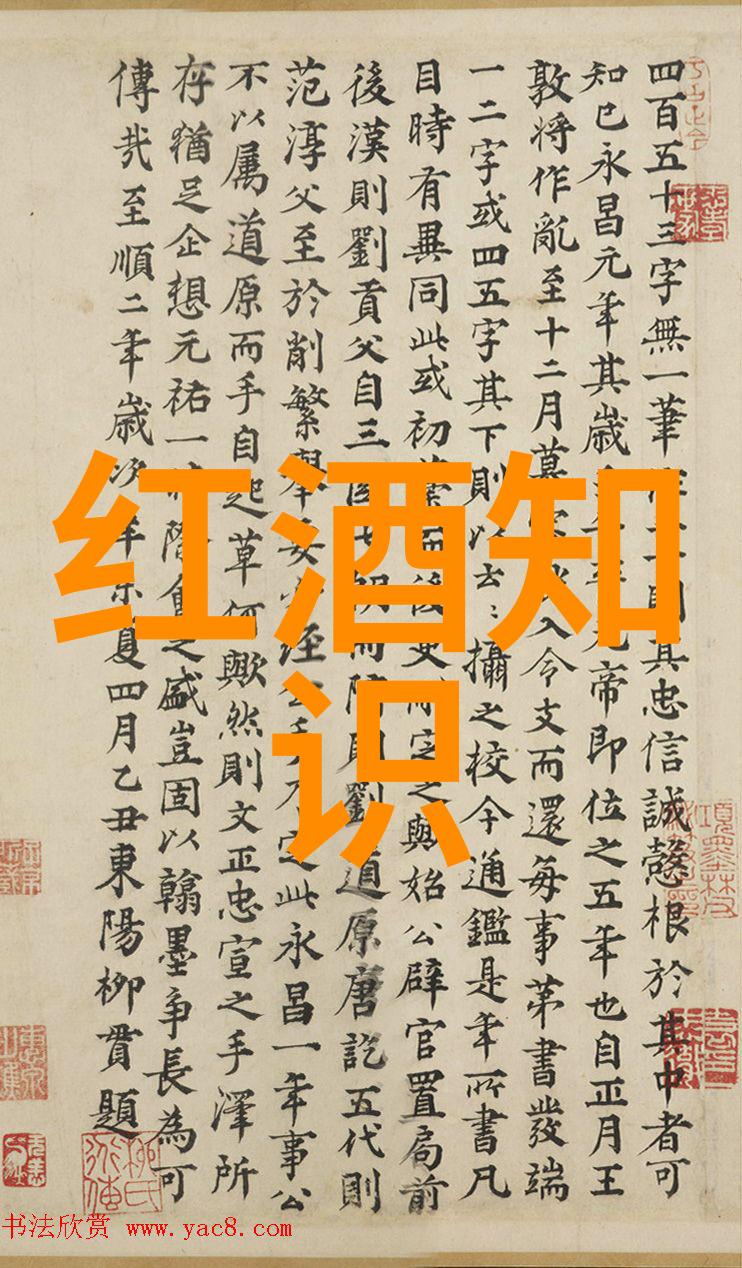 四百五十三字無一筆其忠信誠慤根於其中者可
知已永昌元年其歲元帝即位之五年也自正月王
敦將作亂至十二月慕入令支而還每事第書發端
一二字或四五字其下則以去〻攝之校今通鑑是年所書凡
目時有異同此或初而後定之與始公辟官置局前
後漢則劉貢父自三國七朝而隋則劉道原唐訖五代則
范淳父至於削繁舉要定此永昌一年事公
不以屬道原而手自起草何歟然則文正忠宣之手澤所
存猶足企想元祐一時際會之盛豈固以翰墨爭長為可
傳哉至順二年歲次辛未夏四月乙丑東陽柳貫題
红酒知
识
书法欣赏 www.yac8.com